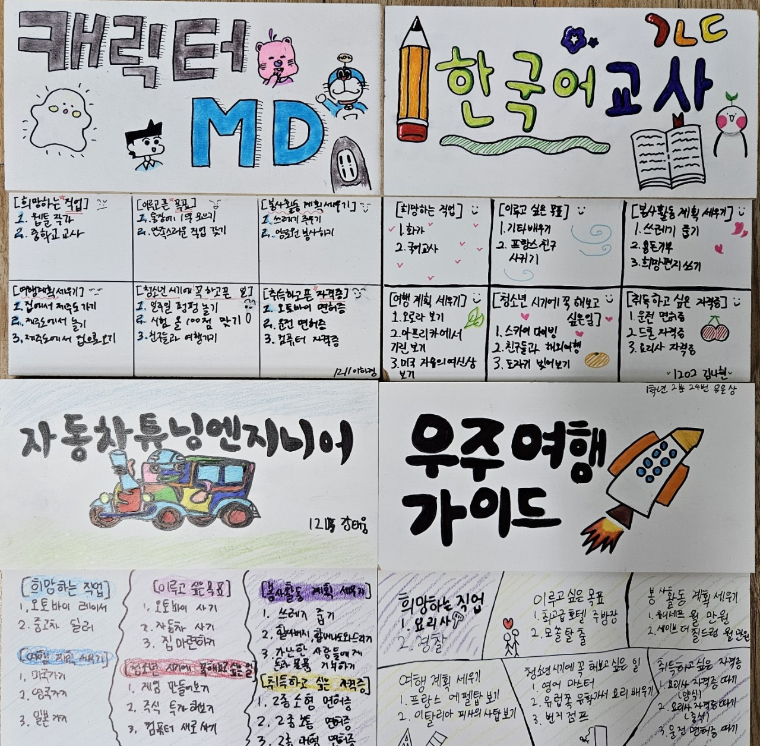 캐릭터
MD
ㄱㄴㄷ
한국어교사
[희망하는 직업]
1. 웹툰 작가
2. 중학교 교사
[이루고픈 목표]
2. 만족스러운 직업 갖기
[봉사활동 계획 세우기]
1. 쓰레기 줍기
[여행계획세우기]
1. 집에서 제주도 가기
2. 제주도에서 놀기
3. 제주도에서 집으로 오기
[청소년 시기에 꼭 하고픈 일]
1. 일주일 펑펑 놀기
2. 시험 올 100점 맞기
3. 친구들과 여행가기
[취득하고픈 자격증]
1. 오토바이 면허증
2. 운전 면허증
3. 컴퓨터 자격증
[희망하는 직업]
1. 화가
2. 국어교사
[이루고 싶은 목표]
1. 기타 배우기
2. 프랑스 친구
사귀기
[봉사활동 계획 세우기]
1. 쓰레기 줍기
2. 용돈기부
3. 희망편지 쓰기
[여행 계획 세우기]
1. 오로라 보기
2. 아프리카에서
기린 보기
3. 미국 자유의 여신상
보기
[청소년 시기에 꼭 해보고
싶은 일]
1. 스카이 다이빙
2. 친구들과 해외여행
3. 도자기 빚어보기
[취득하고 싶은 자격증]
1. 운전 면허증
2. 드론 자격증
3. 요리사 자격증
1202 김나현
자동차튜닝엔지니어
우주여행
가이드
[희망하는 직업]
1. 오토바이 레이서
2. 중고차 딜러
[이루고 싶은 목표]
1. 오토바이 사기
2. 자동차 사기
3. 집 마련하기
[봉사활동 계획 세우기]
1. 쓰레기 줍기
3. 가난한 사람들에게
[여행 계획 세우기]
1. 미국가기
2. 영국가기
3. 일본 가기
[청소년 시기에 꼭해보고 싶은 일]
1. 게임 만들어보기
2. 주식 투자해보기
3. 컴퓨터 새로 사기
[취득하고 싶은 자격증]
1. 2종 소형 면허증
2. 2종 보통 면허증
희망하는 직업
1. 요리사
2. 경찰
이루고 싶은 목표
1. 최고급 호텔 주방장
2. 모쏠탈출
봉사활동 계획 세우기
1. 유니세프 월 만원
2. 세이브 더 칠드런 월 만원
여행 계획 세우기
1. 프랑스 에펠탑 보기
2. 이탈리아 피사의 사탑 보기
청소년 시기에 꼭 해보고 싶은 일
1. 영어 마스터
2. 유럽쪽 유학가서 요리 배우기
3. 번지 점프
취득하고 싶은 자격증
1. 요리사 자격증 따기
(양식)
2. 요리사 자격증 따기
(중식)
3. 운전 면허증 따기